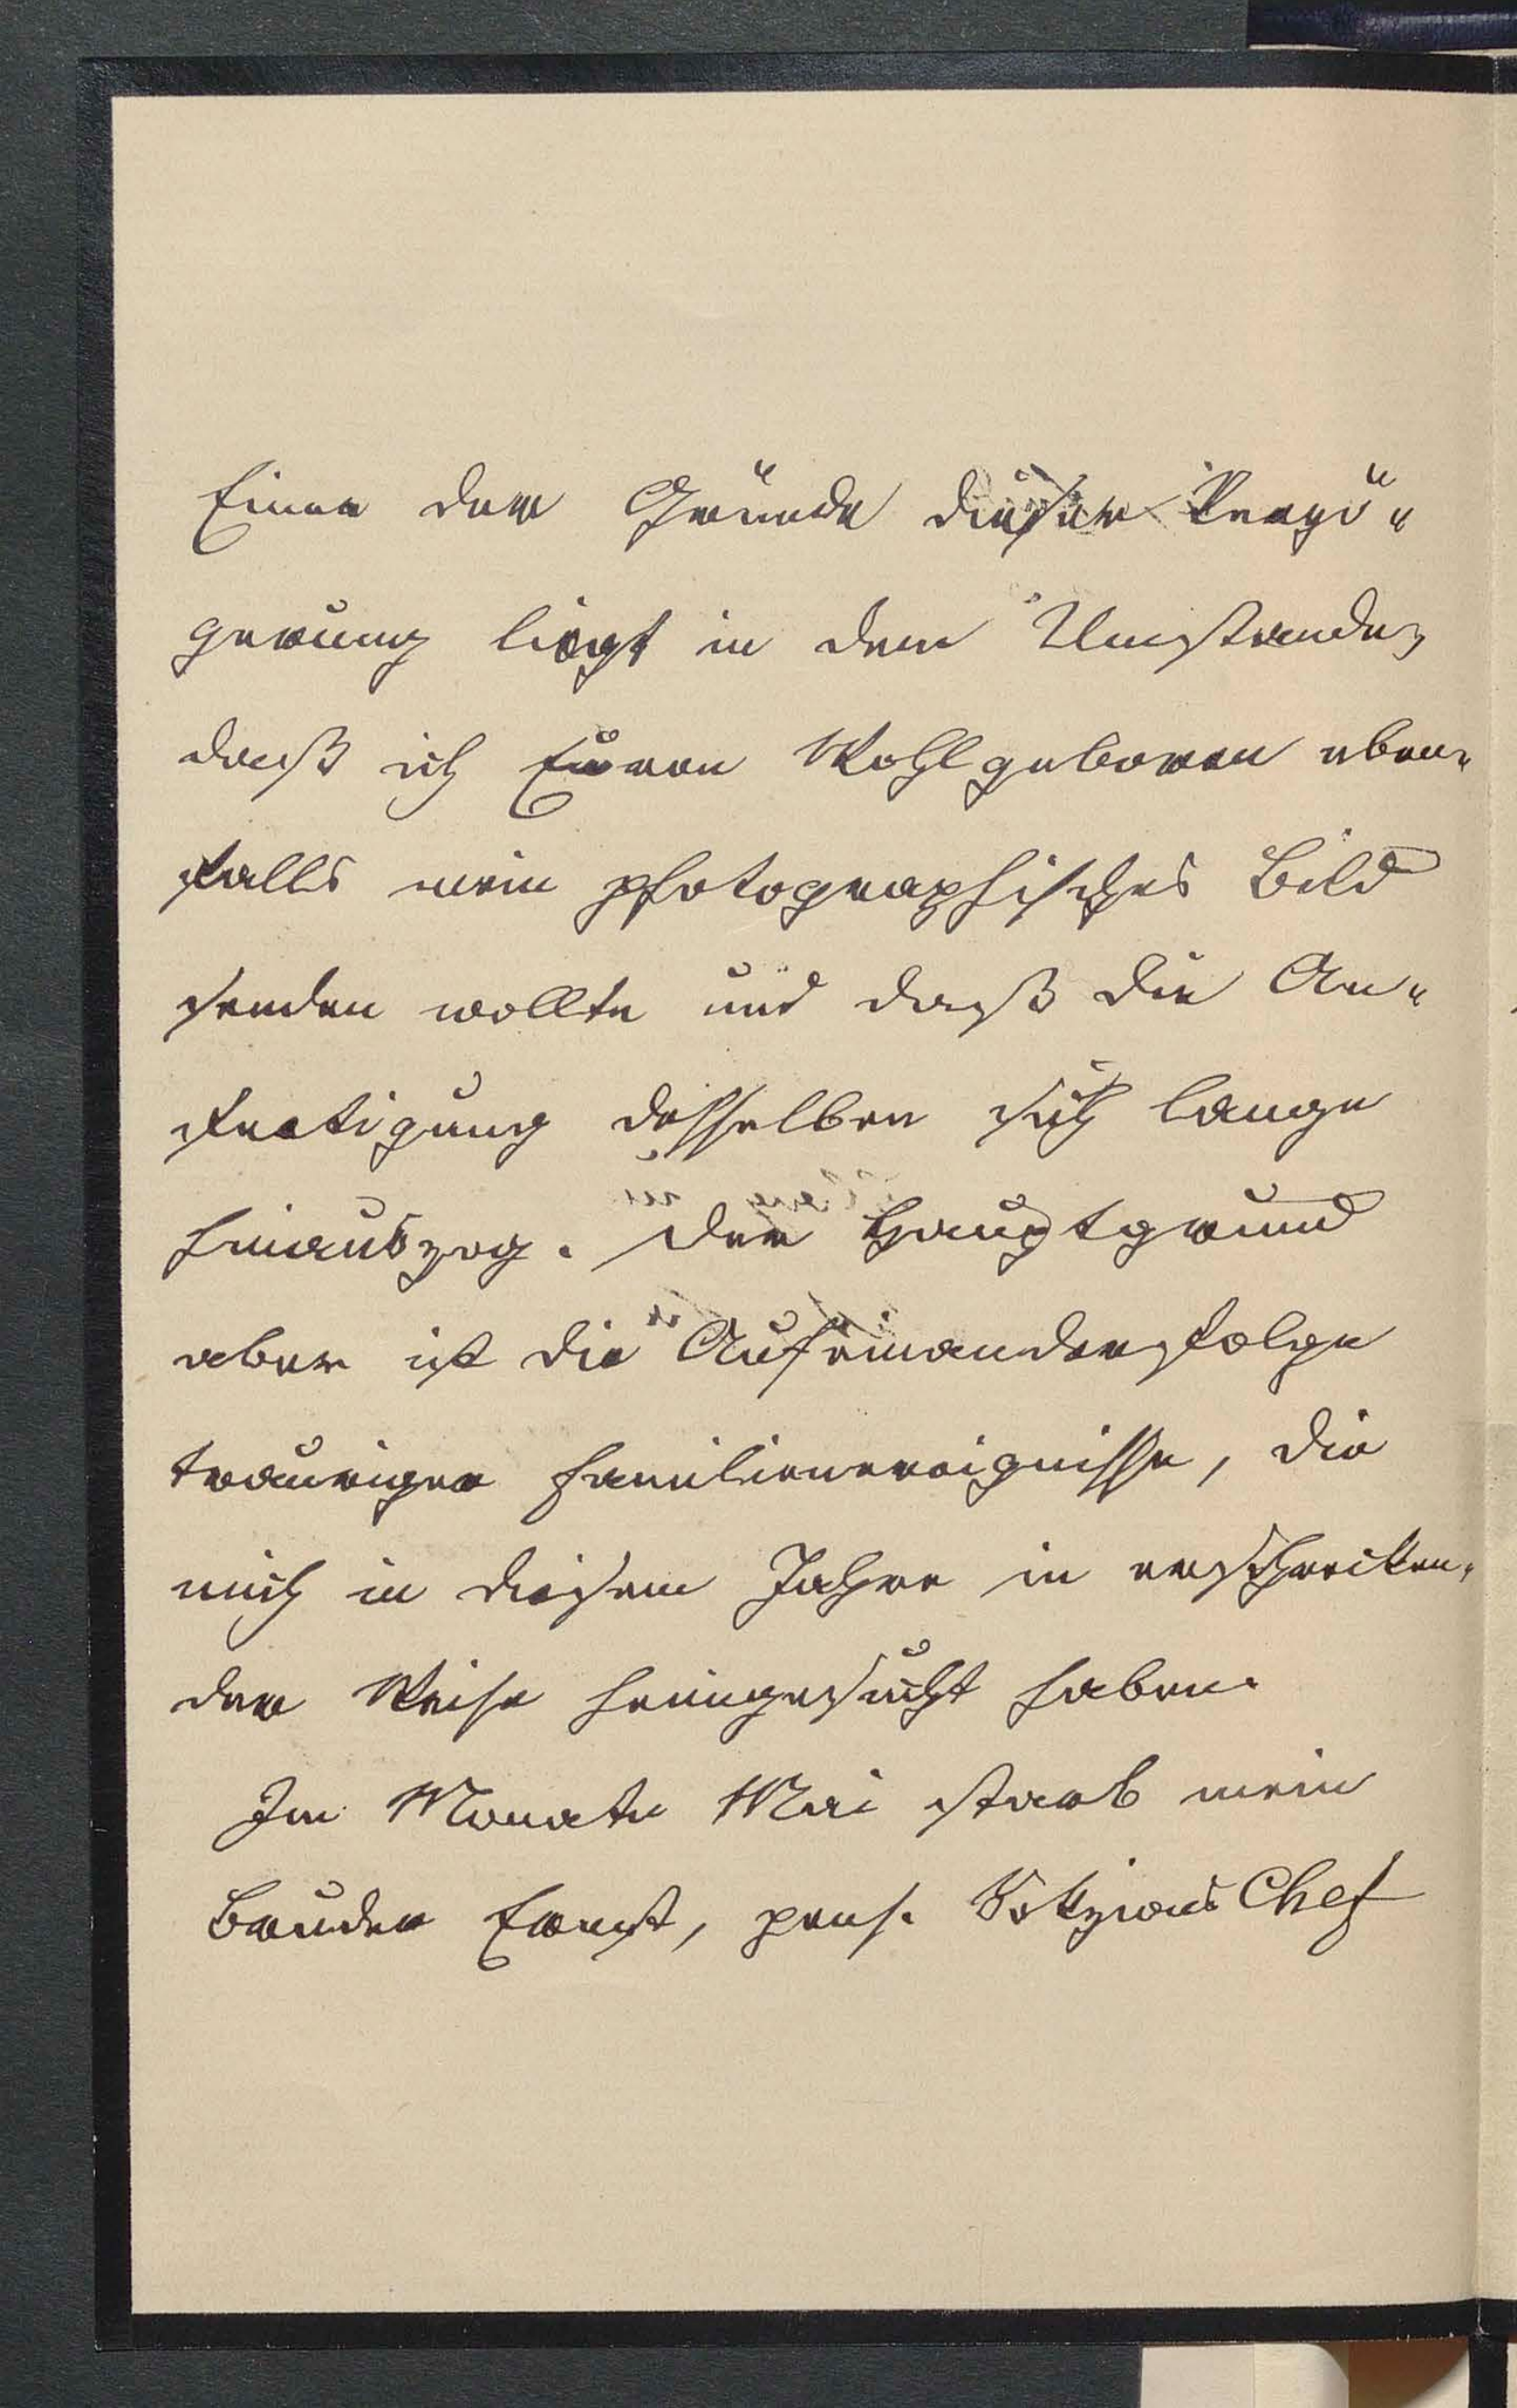 Einer der Gründe dieser Verzö-
gerung liegt in dem Umstande,
daß ich Eueren Wohlgeboren eben-
falls mein photographisches Bild
senden wollte und daß die An-
fertigung desselben sich lange
hinauszog. Der Hauptgrund
aber ist die Aufeinanderfolge
trauriger Familienereignisse, die
mich in diesem Jahre in erschrecken-
der Weise heimgesucht haben.
Im Monate Mai starb mein
Bruder Ernst, pens. Sektions Chef